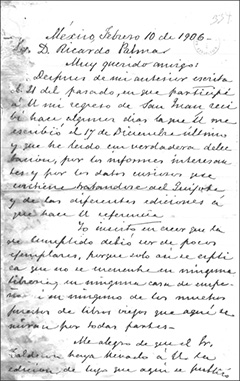 México, Febrero 10 de 1906.-
Sr. D. Ricardo Palma
Muy querido amigo:
Despues de mi anterior escrita
el 21 del pasado, en que participé
á U mi regreso de San Juan reci
bí hace algunos dias la que U me
escribió el 17 de Diciembre último
y que he leido con verdadera delec
tacion, por los informes interesan
tes y por los datos curiosos que
contiene tratandose del Quijote
y de las diferentes ediciones á
que hace U referencia.
Yo insisto en creer que la
de Cumplido debió ser de pocos
ejemplares, porque solo asi se espli
ca que no se encuentre en ninguna
libreria, en ninguna casa de empe
ño i en ninguno de los muchos
puestos de libros viejos que aqui se
miran por todas partes.-
Me alegro de que el Sr.
haya llevado á U la
edicion de lujo que aqui se publicó